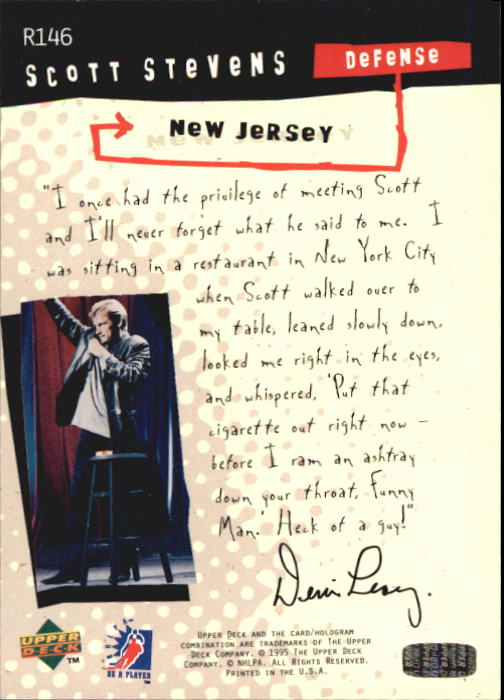 R146
SCOTT STEVENS
DEFENSE
NEW JERSEY
"I once had the privilege of meeting Scott
and I'll never forget what he said to me. I
was sitting in a restaurant in New York City
when Scott walked over to
my table, leaned slowly down,
looked me right in the eyes,
and whispered, 'Put that
cigarette out right now -
before I ram an ashtray
down your throat, Funny
Man.' Heck of a guy!"
Denis Leary.
UPPER DECK AND THE CARD/HOLOGRAM
COMBINATION ARE TRADEMARKS OF THE UPPER
DECK COMPANY. © 1995 THE UPPER DECK
COMPANY. © NHLPA. ALL RIGHTS RESERVED.
PRINTED IN THE U.S.A.
UPPER
DECK
TM
BE A PLAYER
TM